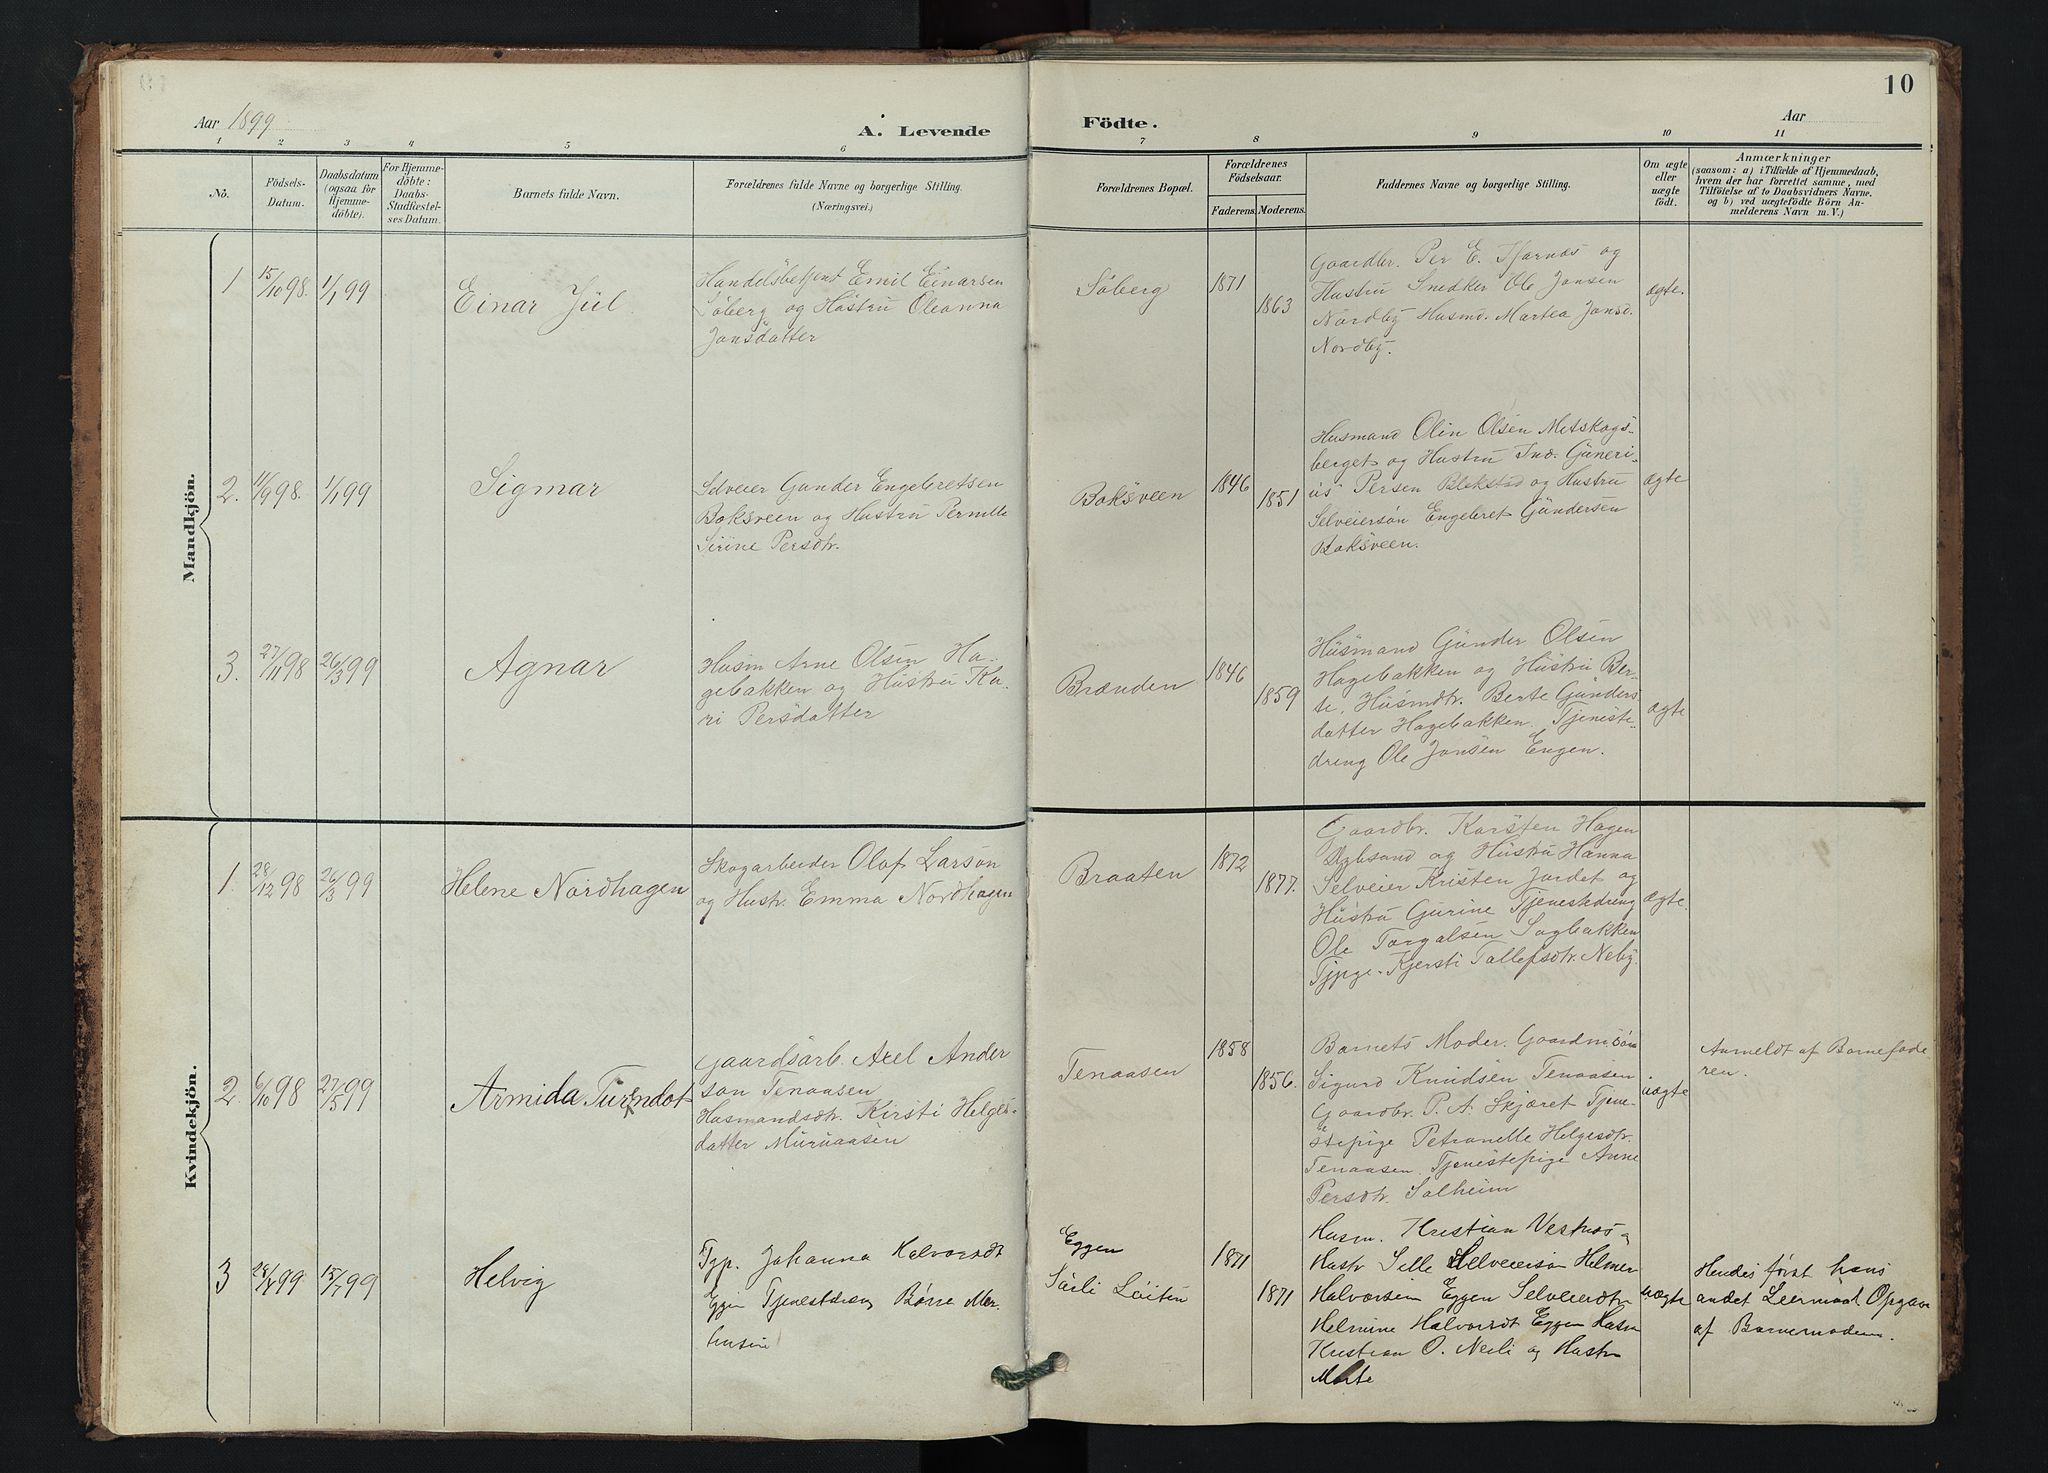 Aar 1899
A. Levende
Födte.
Aar
10
1
2
3
4
5
6
7
8
9
10
11
No.
Födsels-
Datum.
Daabsdatum
(ogsaa for
Hjemme-
döbte).
For Hjemme-
döbte:
Daabs-
Stadfæstel-
ses Datum.
Barnets fulde Navn.
Forældrenes fulde Navne og borgerlige Stilling.
(Næringsvei.)
Forældrenes Bopæl.
Forældrenes
Födselsaar.
Faderens.
Moderens.
Faddernes Navne og borgerlige Stilling.
Om ægte
eller
uægte
födt.
Anmærkninger
(saasom: a) i Tilfælde af Hjemmedaab,
hvem der har forrettet samme, med
Tilföielse af to Daabsvidners Navne.
og b) ved uægtefödte Börn An-
melderens Navn m. V.)
Mandkjön.
1
15/10 98.
1/1 99
Einar Jul.
Handelsbetjent Emil Einarsen
Söberg og Hustru Oleanna
Jonsdatter
Söberg
1871
1863
Gaardbr. Per E. Tjernæs og
Hustru Snedker Ole Jonsen
Nordby Husmd. Martea Jonsd.
Nordby.
ægte.
2.
11/9 98.
1/1 99
Sigmar
Selveier Gunder Engebretsen
Boksveen og Hustru Pernille
Sirine Persdtr.
Boksveen
1846
1851
Husmand Olin Olsen Metskogs-
berget og Hustru Ind. Guneri-
us Persen Blekstad og Hustru
Selveiersön Engebret Gundersen
Boksveen.
ægte
3.
27/11 98
26/3 99
Agnar
Husm Arne Olsen Ha-
gebakken og Hustru Ka-
ri Persdatter
Brænden
1846
1859
Husmand Gunder Olsen
Hagebakken og Hustru Ber-
te, Husmdtr. Berte Gunders
datter Hagebakken. Tjeneste-
dreng Ole Jonsen Engen.
ægte
Kvindekjön.
1.
28/12 98
26/3 99
Helene Nordhagen
Skogarbeider Olof Larson
og Hustr. Emma Nordhagen
Braaten
1872
1877.
Gaardbr. Karsten Hagen
og Hustru Hanna
Selveier Kristen Jordet og
Hustru Gurine Tjenestdreng
Ole Torgalsen Sagbakken
Tjpige. Kjersti Tollefsdtr. Neby.
ægte.
2.
6/10 98
27/5 99
Armida Turndot
Gaardsarb. Axel Ander
son Tenaasen
Husmandsdtr. Kirsti Helges-
datter Muruaasen
Tenaasen
1858
1856.
Barnets Moder. Gaardmsön
Sigurd Knudsen Tenaasen
Gaardbr. P. A. Skjæret Tjene-
stepige Petronelle Helgesdtr.
Tenaasen. Tjenestepige Anne
Persdtr. Solheim
uægte
Anmeldt af Barnefade-
ren.
3
28/4 99
15/7 99
Helvig
Tjp. Johanna Halvorsdt
Eggen Tjenestdreng Börre Mor
husen
Eggen
Söili Löiten
1871
1871
Husm. Kristian Vestnæs og
Hustr Sille Selveiersön Helmer
Halvorsen Eggen Selveierdtr
Helmine Halvorsdt Eggen Husm
Kristian O. Neeli og Hustr
Marte
uægte
Hendes först hans
andet Leiermaal Opgave
af Barnemoderen.